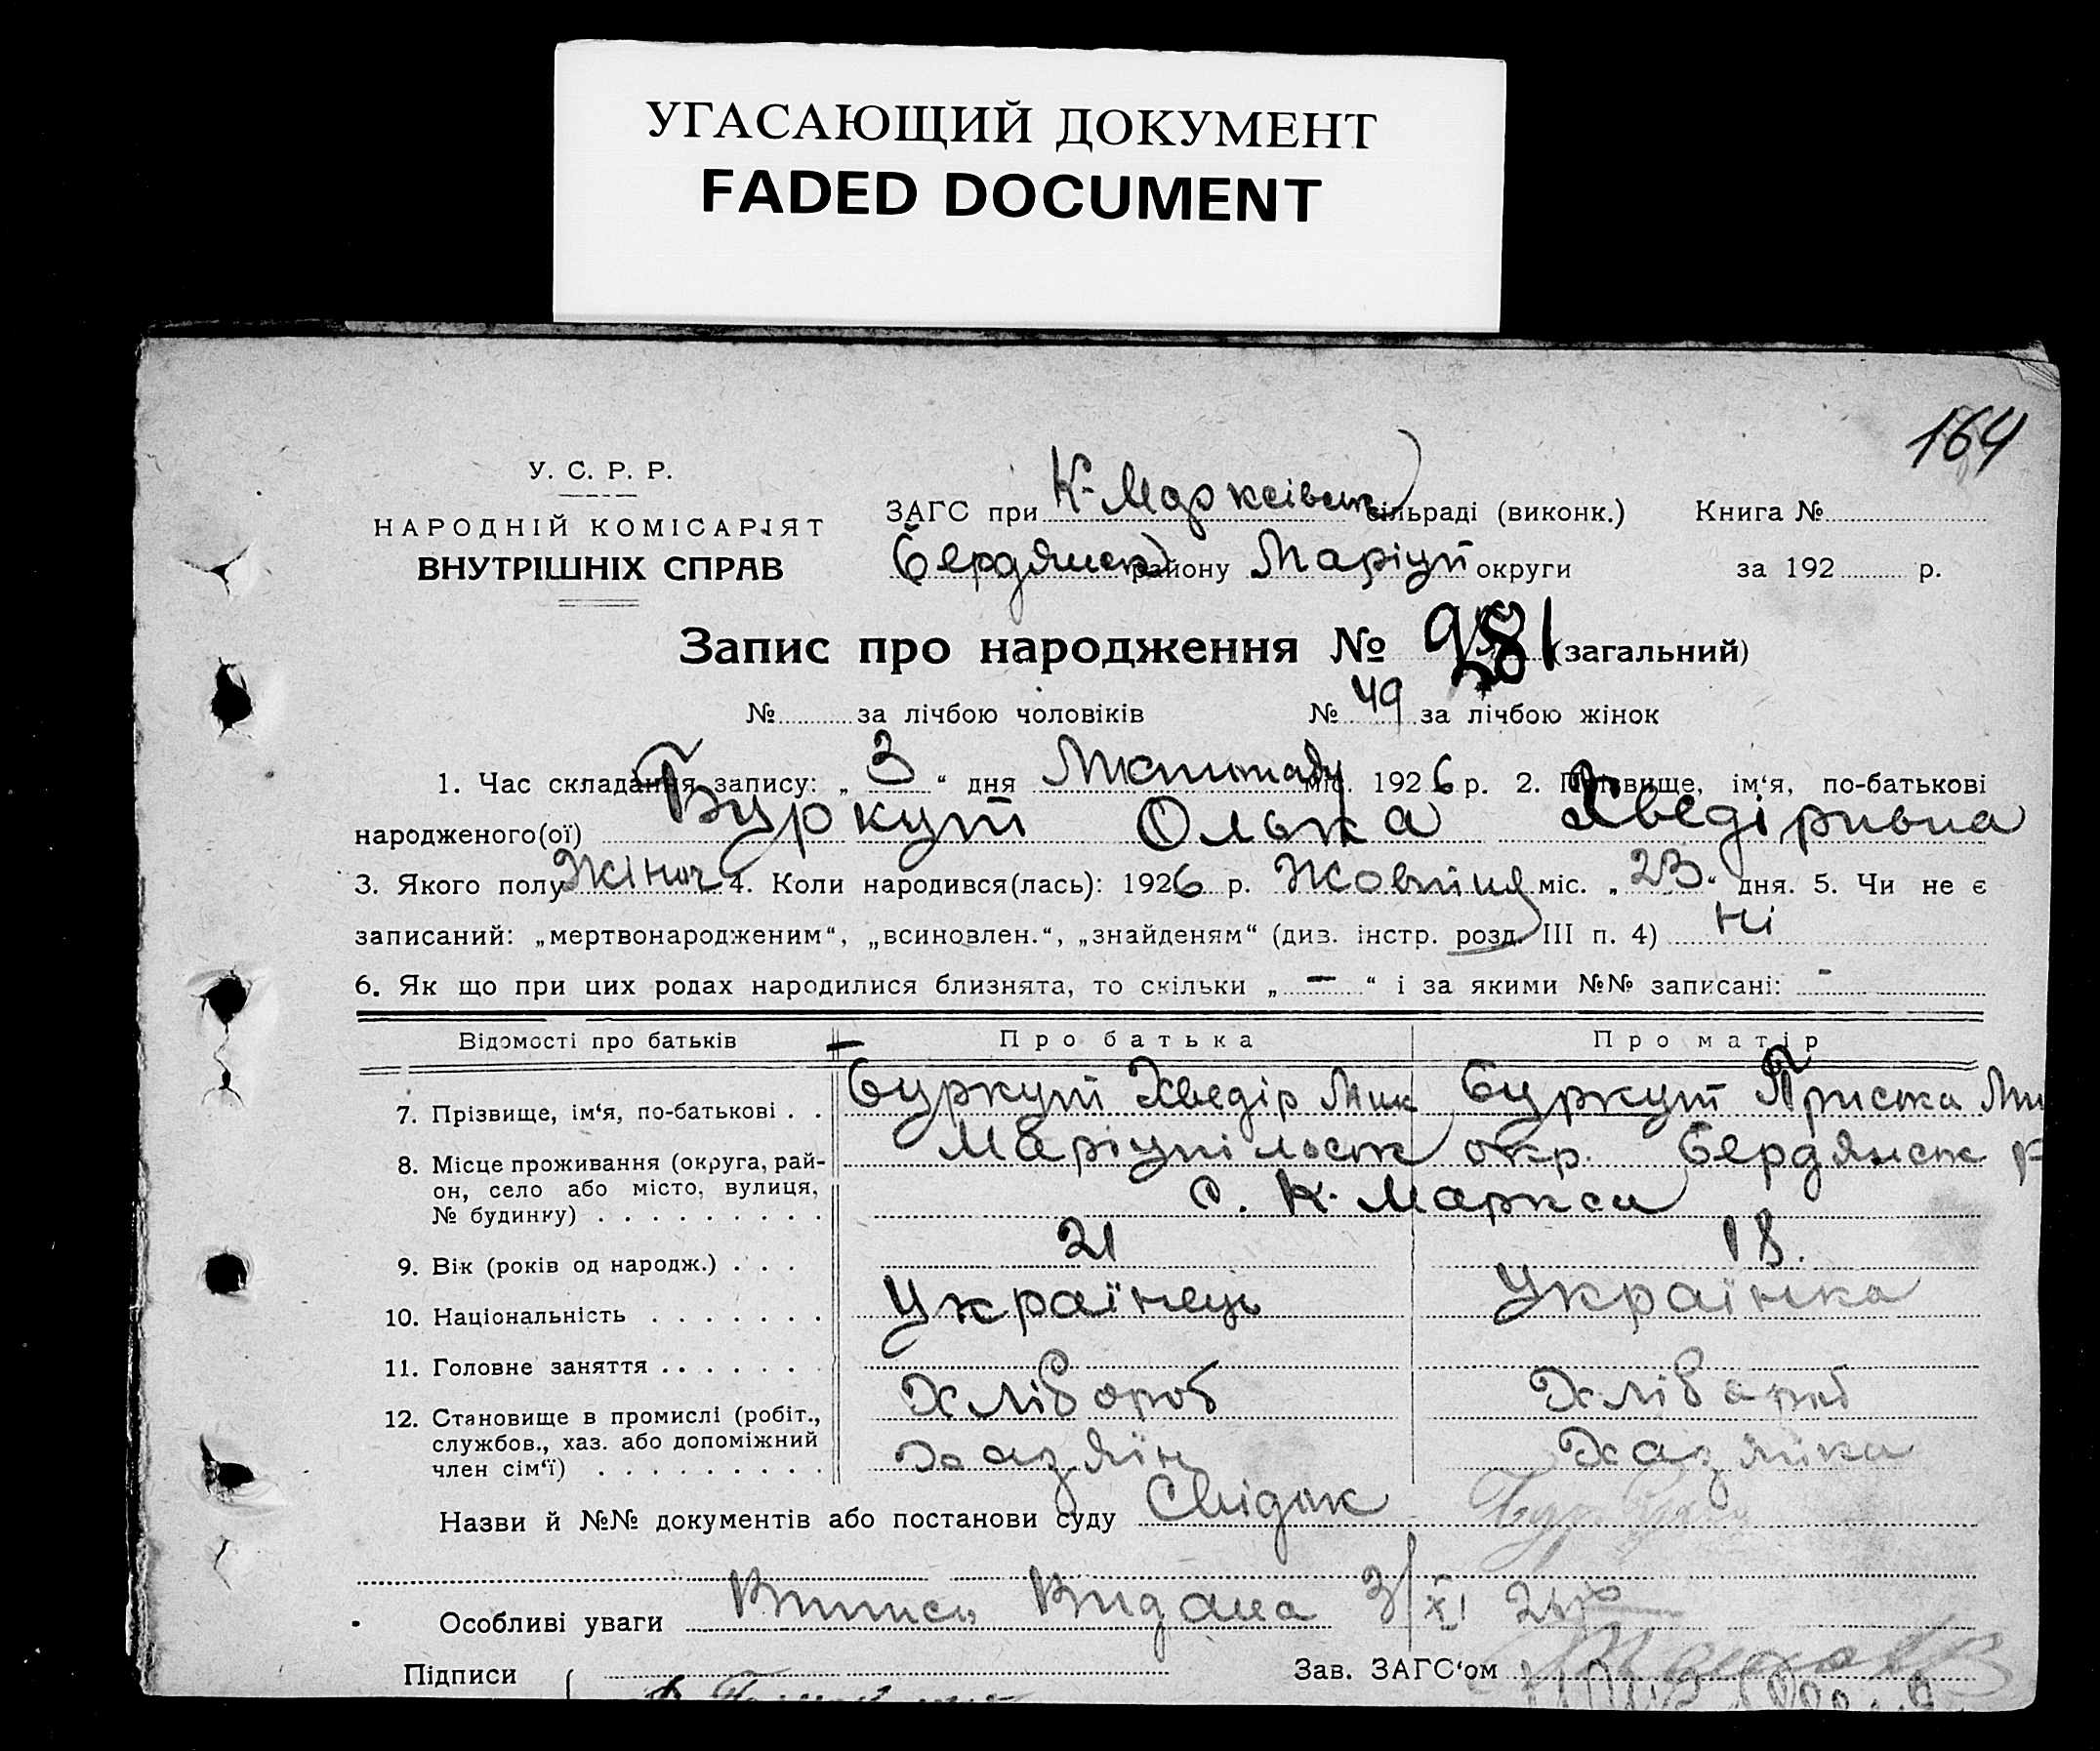 УГАСАЮЩИЙ ДОКУМЕНТ
FADED DOCUMENT
164
У. С. Р. Р.
НАРОДНІЙ КОМІСАРІЯТ
ВНУТРІШНІХ СПРАВ
ЗАГС при К-Марксівськ сільраді (виконк.) Книга №
Бердянськ району Маріуп округи за 192 р.
Запис про народження № 981 (загальний)
№ за лічбою чоловіків № 49 за лічбою жінок
1. Час складання запису: „ 3 “ дня Листопаду міс. 1926 р. 2. Прізвище, ім‘я, по-батькові
народженого(ої) Буркут Олька Хведіривна
3. Якого полу Жіноч 4. Коли народився(лась): 1926 р. Жовтня міс. „ 23 “ дня. 5. Чи не є
записаний: „мертвонародженим“, „всиновлен.“, „знайденям“ (див. інстр. розд. III п. 4) Ні
6. Як що при цих родах народилися близнята, то скільки „ — “ і за якими №№ записані: -
Відомості про батьків Про батька Про матір
7. Прізвище, ім‘я, по-батькові . . Буркут Хведір Мик Буркут Приська Ми
8. Місце проживання (округа, рай- Маріупільськ окр. Бердянськ р
он, село або місто, вулиця, С. К. Маркса
№ будинку) . . . . . . . . .
9. Вік (років од народж.) . . . 21 18.
10. Національність . . . . . . . Українець Українка
11. Головне заняття . . . . . . . Хлівороб Хлівороб
12. Становище в промислі (робіт., службов., хаз. або допоміжний Хазяїн Хазяйка
член сім‘ї) . . . . . . . . .
Назви й №№ документів або постанови суду Свідок
Особливі уваги Випись Видана 3/XI 26р
Підписи Зав. ЗАГС‘ом